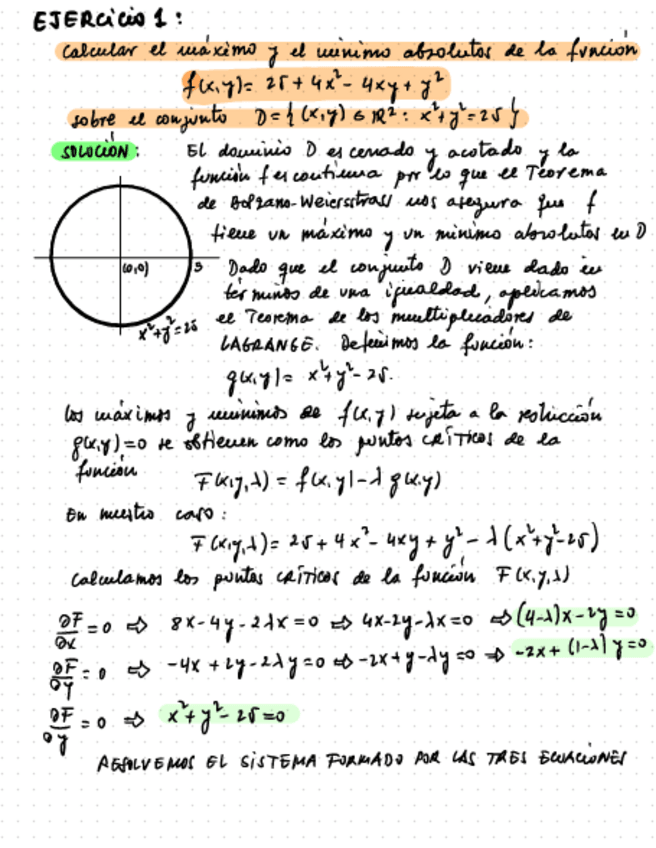 EJERCICIO 1:
Calcular el máximo y el mínimo absolutos de la función
f(x,y) = 25 + 4x² - 4xy + y²
sobre el conjunto D = { (x,y) ∈ ℝ² : x² + y² = 25 }
SOLUCIÓN: El dominio D es cerrado y acotado y la
función f es continua por lo que el Teorema
de Bolzano-Weierstrass nos asegura que f
tiene un máximo y un mínimo absolutos en D
(0,0) 5 Dado que el conjunto D viene dado en
términos de una igualdad, aplicamos
x² + y² = 25 el Teorema de los multiplicadores de
LAGRANGE. Definimos la función:
g(x,y) = x² + y² - 25.
Los máximos y mínimos de f(x,y) sujeta a la restricción
g(x,y) = 0 se obtienen como los puntos CRÍTICOS de la
función F(x,y,λ) = f(x,y) - λ g(x,y)
En nuestro caso:
F(x,y,λ) = 25 + 4x² - 4xy + y² - λ (x² + y² - 25)
Calculamos los puntos CRÍTICOS de la función F(x,y,λ)
∂F/∂x = 0 ⇒ 8x - 4y - 2λx = 0 ⇒ 4x - 2y - λx = 0 ⇒ (4-λ)x - 2y = 0
∂F/∂y = 0 ⇒ -4x + 2y - 2λy = 0 ⇒ -2x + y - λy = 0 ⇒ -2x + (1-λ) y = 0
∂F/∂y = 0 ⇒ x² + y² - 25 = 0
RESOLVEMOS EL SISTEMA FORMADO POR LAS TRES ECUACIONES